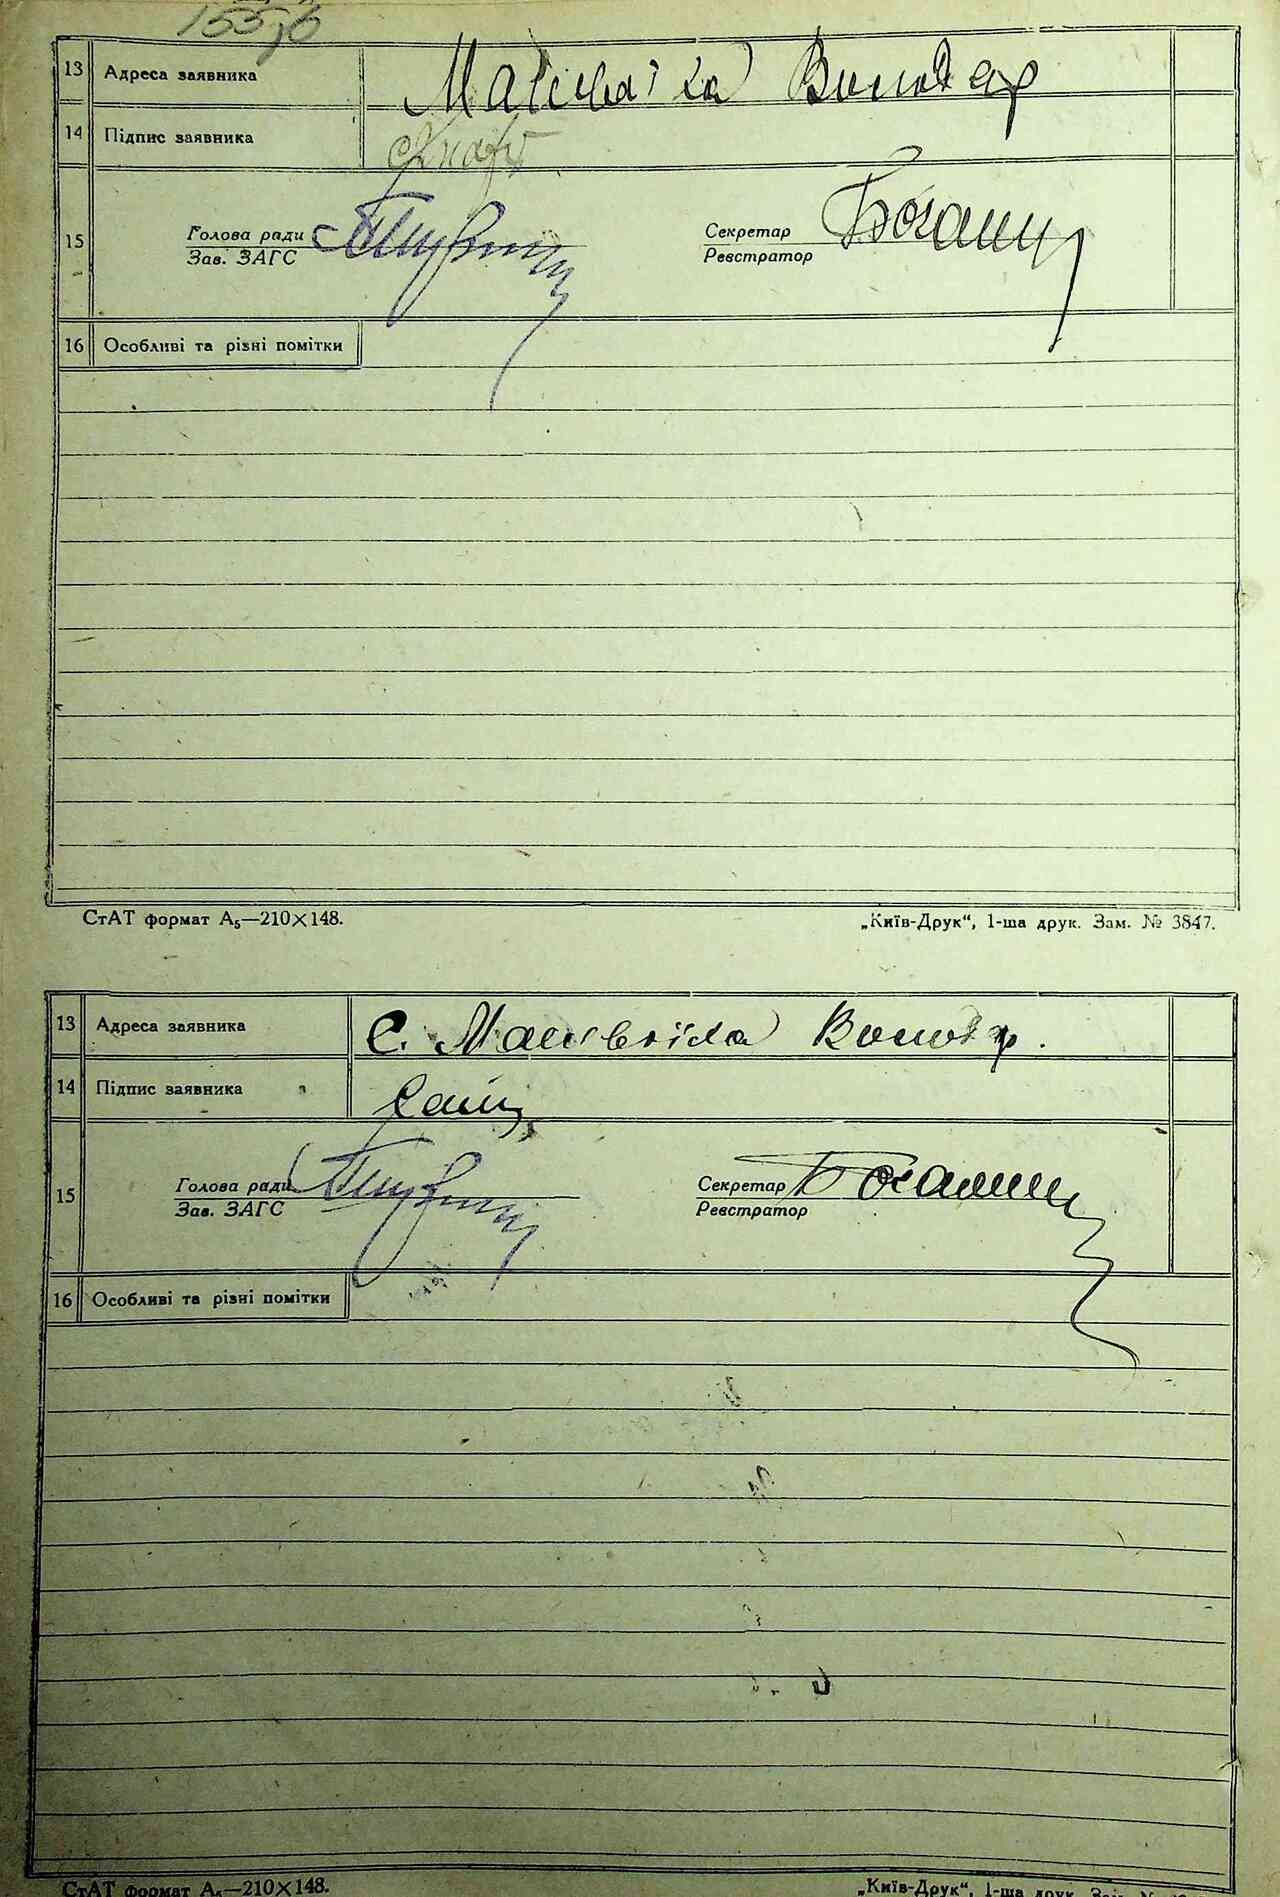 155зв
13 Адреса заявника Матвіїха Володар
14 Підпис заявника
15 Голова ради Секретар
Зав. ЗАГС Реєстратор
16 Особливі та різні помітки
СтАТ формат А₅—210×148. „Київ-Друк“, 1-ша друк. Зам. № 3847.
13 Адреса заявника С. Матвіїха Володар.
14 Підпис заявника
15 Голова ради Секретар
Зав. ЗАГС Реєстратор
16 Особливі та різні помітки
СтАТ формат А₅—210×148. „Київ-Друк“, 1-ша друк. Зам.